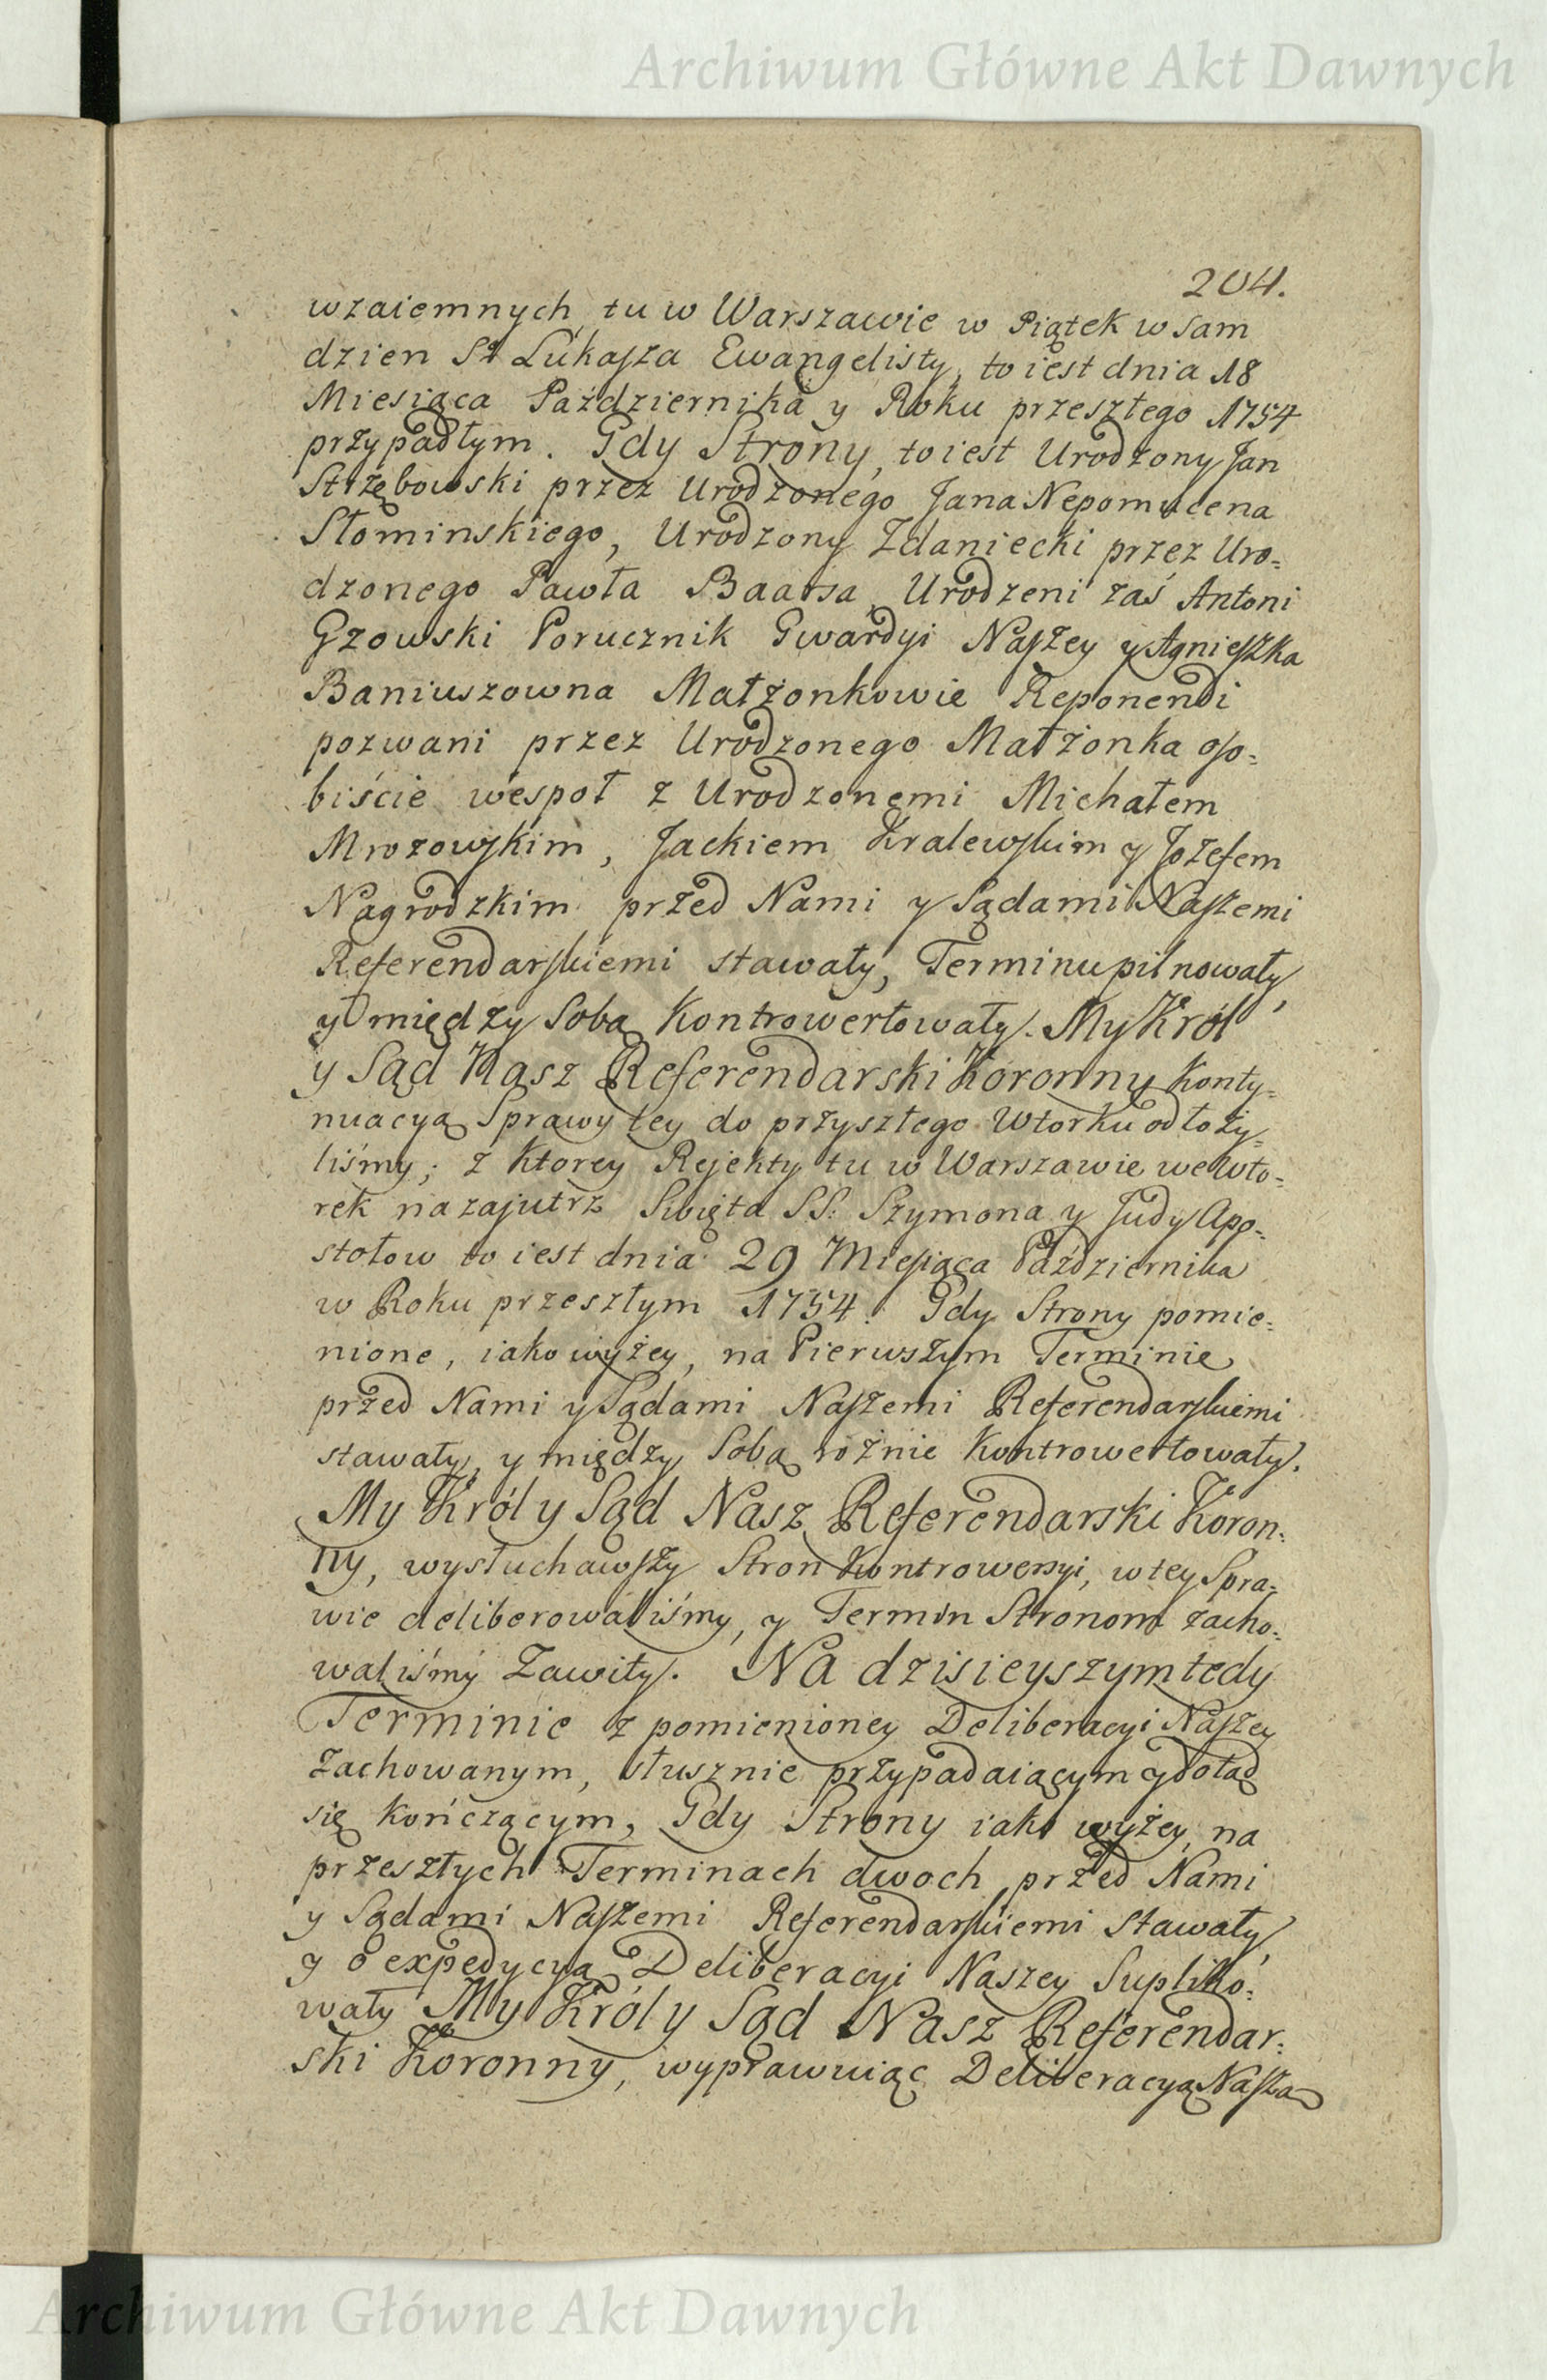 Archiwum Główne Akt Dawnych
204.
wzaiemnych, tu w Warszawie w Piątek w sam
dzien St Łukasza Ewangelisty, to iest dnia 18
Miesiąca Pazdziernika y Roku przeszłego 1754
przypadłym. Gdy Strony, to iest Urodzony Jan
Strzębowski przez Urodzonego Jana Nepomucena
Słominskiego, Urodzony Zdaniecki przez Uro=
dzonego Pawła Baarsa, Urodzeni zaś Antoni
Gzowski Porucznik Gwardyi Naszey y Agnieszka
Baniuszowna Małżonkowie Reponendi
pozwani przez Urodzonego Małżonka oso=
biście wespoł z Urodzonemi Michałem
Mrozowskim, Jackiem Kralewskim y Jozefem
Nagrodzkim przed Nami y Sądami Naszemi
Referendarskiemi stawały, Terminu pilnowały,
y między Sobą Kontrowertowały. My Król
y Sąd Nasz Referendarski Koronny Konty=
nuacyą Sprawy tey do przyszłego Wtorku odłoży=
liśmy; z ktorey Rejekty tu w Warszawie we Wto=
rek nazajutrz Swięta SS. Szymona y Judy Apo=
stołow to iest dnia 29 Miesiąca Pażdziernika
w Roku przeszłym 1754. Gdy Strony pomie=
nione, iako wyżey, na Pierwszym Terminie
przed Nami y Sądami Naszemi Referendarskiemi
stawały, y między Sobą rożnie Kontrowertowały.
My Król y Sąd Nasz Referendarski Koron=
ny, wysłuchawszy Stron Kontrowersyi, w tey Spra=
wie deliberowaliśmy, y Termin Stronom zacho=
waliśmy Zawity. Na dzisieyszym tedy
Terminie z pomienioney Deliberacyi Naszey
zachowanym, słusznie przypadaiącym y dotąd
się kończącym, Gdy Strony iako wyżey, na
przeszłych Terminach dwoch, przed Nami
y Sądami Naszemi Referendarskiemi stawały,
y o expedycyą Deliberacyi Naszey Supliko=
wały My Król y Sąd Nasz Referendar=
ski Koronny, wyprawuiąc Deliberacyą Naszą
Archiwum Główne Akt Dawnych